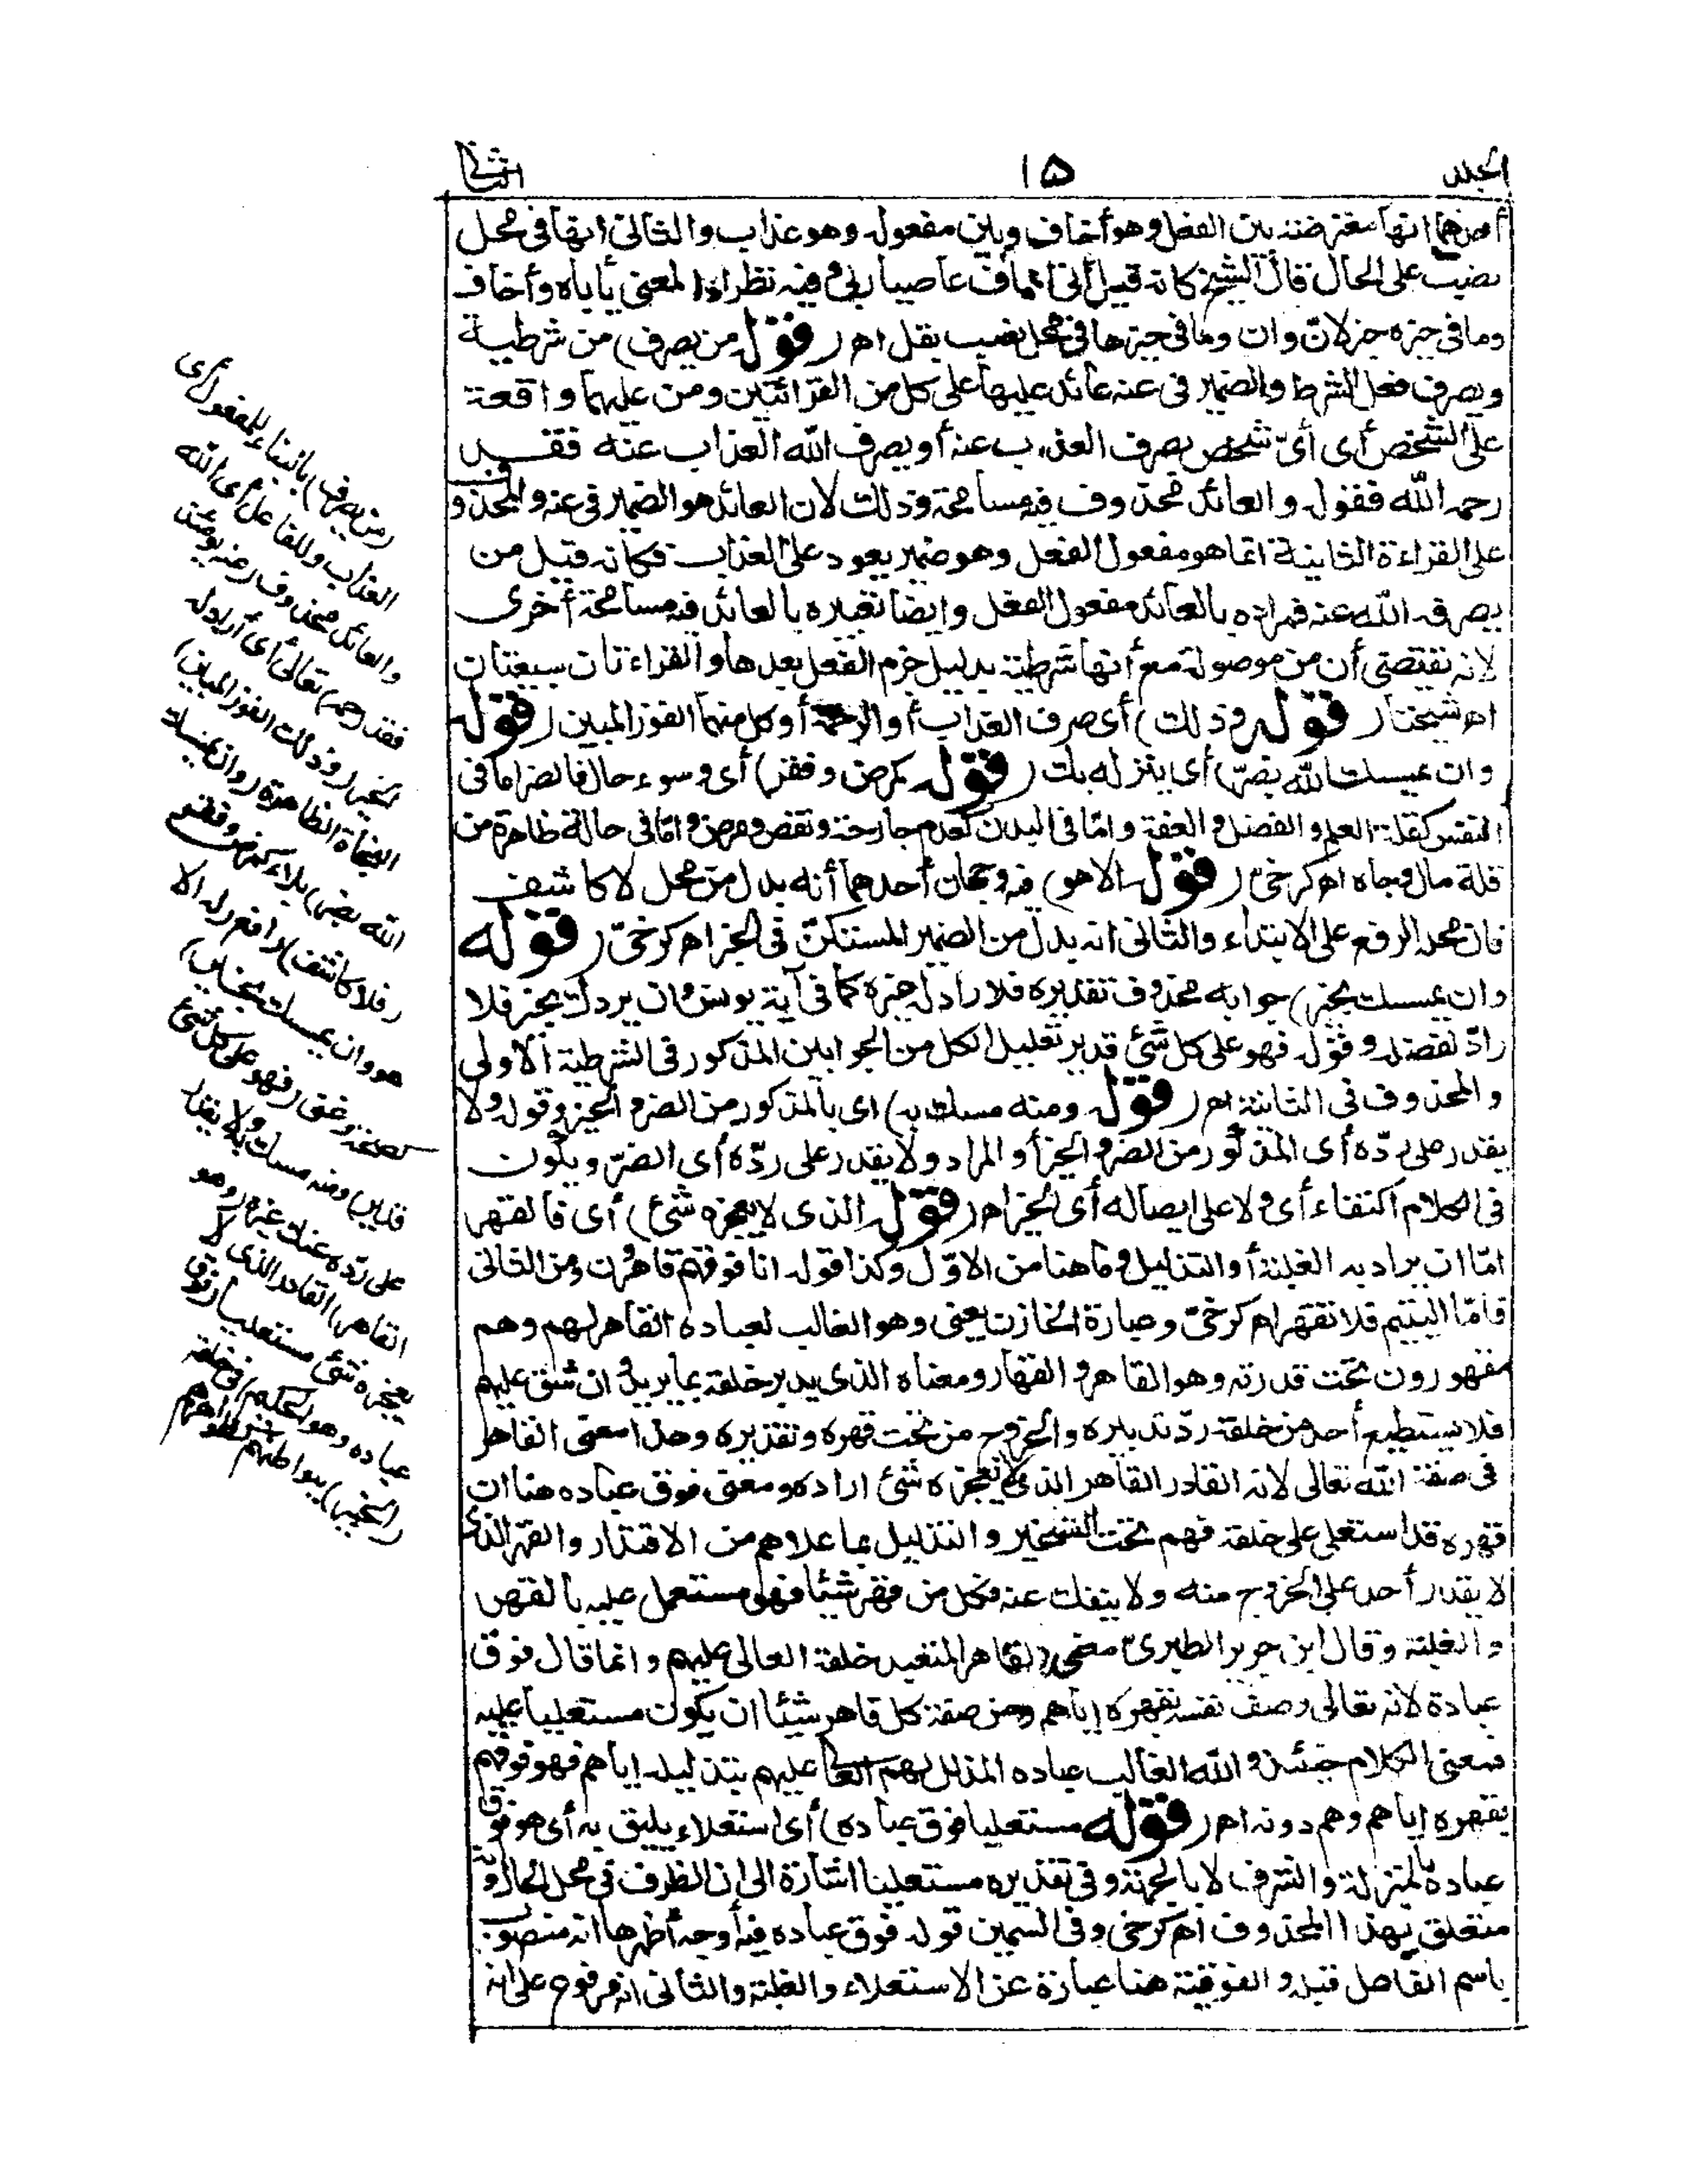 الجلد ١٥ الثاني
أحدهما انها معترضة بين الفعل وهو أخاف وبين مفعوله وهو عذاب والثاني انها في محل
نصب على الحال قال الشيخ كانه قيل انى أخاف عاصيا ربى وفيه نظر اذ المعنى يأباه وأخاف
وما فى حيزه خبر لانّ وان وما فى حيزها فى محل نصب بقل اهـ (قوله من يصرف) من شرطية
ويصرف فعل الشرط والضمير فى عنه عائد عليها على كل من القرائتين ومن عليهما واقعة
على الشخص أى أىّ شخص يصرف العذاب عنه أو يصرف الله العذاب عنه فقد
رحمه الله فقوله والعائد محذوف فيه مسامحة وذلك لان العائد هو الضمير فى عنه والمحذوف
على القراءة الثانية انما هو مفعول الفعل وهو ضمير يعود على العذاب فكانه قيل من
يصرفه الله عنه فمراده بالعائد مفعول الفعل وايضا تعبيره بالعائد فيه مسامحة أخرى
لانه يقتضى أن من موصولة مع أنها شرطية بدليل جزم الفعل بعدها والقراءتان سبعيتان
اهـ شيخنا (قوله وذلك) أى صرف العذاب أو الرحمة أو كل منهما الفوز المبين (قوله
وان يمسسك الله بضرّ) أى ينزله بك (قوله كمرض وفقر) أى وسوء حال فالضر اما فى
النفس كقلة العلم والفضل والعفة واما فى البدن كعدم جارحة ونقص ومرض واما فى حالة ظاهرة من
قلة مال وجاه اهـ كرخىّ (قوله الا هو) فيه وجهان أحدهما أنه بدل من محل لا كاشف
فان محله الرفع على الابتداء والثانى انه بدل من الضمير المستكنّ فى الخبر اهـ كرخىّ (قوله
وان يمسسك بخير) جوابه محذوف تقديره فلا رادّ له غيره كما فى آية يونس وان يردك بخير فلا
رادّ لفضله وقوله فهو على كل شئ قدير تعليل لكل من الجوابين المذكور فى الشرطية الاولى
والمحذوف فى الثانية اهـ (قوله ومنه مسك به) اى بالمذكور من الضر والخير وقوله ولا
يقدر على ردّه أى المذكور من الضر والخير أو المراد ولا يقدر على ردّه أى الضرّ ويكون
فى الكلام اكتفاء أى ولا على ايصاله أى الخير اهـ (قوله الذى لا يعجزه شئ) أى فالقهر
امّا ان يراد به الغلبة أو التذليل وما هنا من الاوّل وكذا قوله انا فوقهم قاهرون ومن الثانى
فامّا اليتيم فلا تقهر اهـ كرخىّ وعبارة الخازن يعنى وهو الغالب لعباده القاهر لهم وهم
مقهورون تحت قدرته وهو القاهر والقهار ومعناه الذى يدبر خلقه بما يريد وان شق عليهم
فلا يستطيع أحد من خلقه ردّ تدبيره والخروج من تحت قهره وتقديره وهذا معنى القاهر
فى صفة الله تعالى لانه القادر القاهر الذى لا يعجزه شئ اراده ومعنى فوق عباده هنا ان
قهره قد استعلى على خلقه فهم تحت التسخير والتذليل بما علاهم من الاقتدار والقهر الذى
لا يقدر أحد على الخروج منه ولا ينفك عنه فكل من قهر شيئا فهو مستعل عليه بالقهر
والغلبة وقال ابن جرير الطبرىّ معنى القاهر المتعبد خلقه العالى عليهم وانما قال فوق
عباده لانه تعالى وصف نفسه بقهره إياهم ومن صفة كل قاهر شيئا ان يكون مستعليا عليه
فمعنى الكلام حينئذ والله الغالب عباده المذلل لهم العالى عليهم بتذليله اياهم فهو فوقهم
بقهره إياهم وهم دونه اهـ (قوله مستعليا فوق عباده) أى استعلاء يليق به أى هو فوق
عباده بالمنزلة والشرف لا بالجهة وفى تقديره مستعليا اشارة الى ان الظرف فى محل الحال وأنه
متعلق بهذا المحذوف اهـ كرخى وفى السمين قوله فوق عباده فيه أوجه أظهرها انه منصوب
باسم الفاعل قبله والفوقية هنا عبارة عن الاستعلاء والغلبة والثانى انه مرفوع على انه
(من يصرف) بالبناء للمفعول أى
العذاب وللفاعل أى الله
والعائد محذوف (عنه يومئذ
فقد رحمه) تعالى أى أراد له
الخير (وذلك الفوز المبين)
النجاة الظاهرة (وان يمسسك
الله بضر) بلاء كمرض وفقر
(فلا كاشف) رافع (له الا
هو وان يمسسك بخير)
كصحة وغنى (فهو على كل شئ
قدير) ومنه مسك به ولا يقدر
على ردّه عنك غيره (وهو
القاهر) القادر الذى لا
يعجزه شئ مستعليا (فوق
عباده وهو الحكيم) فى خلقه
(الخبير) ببواطنهم كظواهرهم